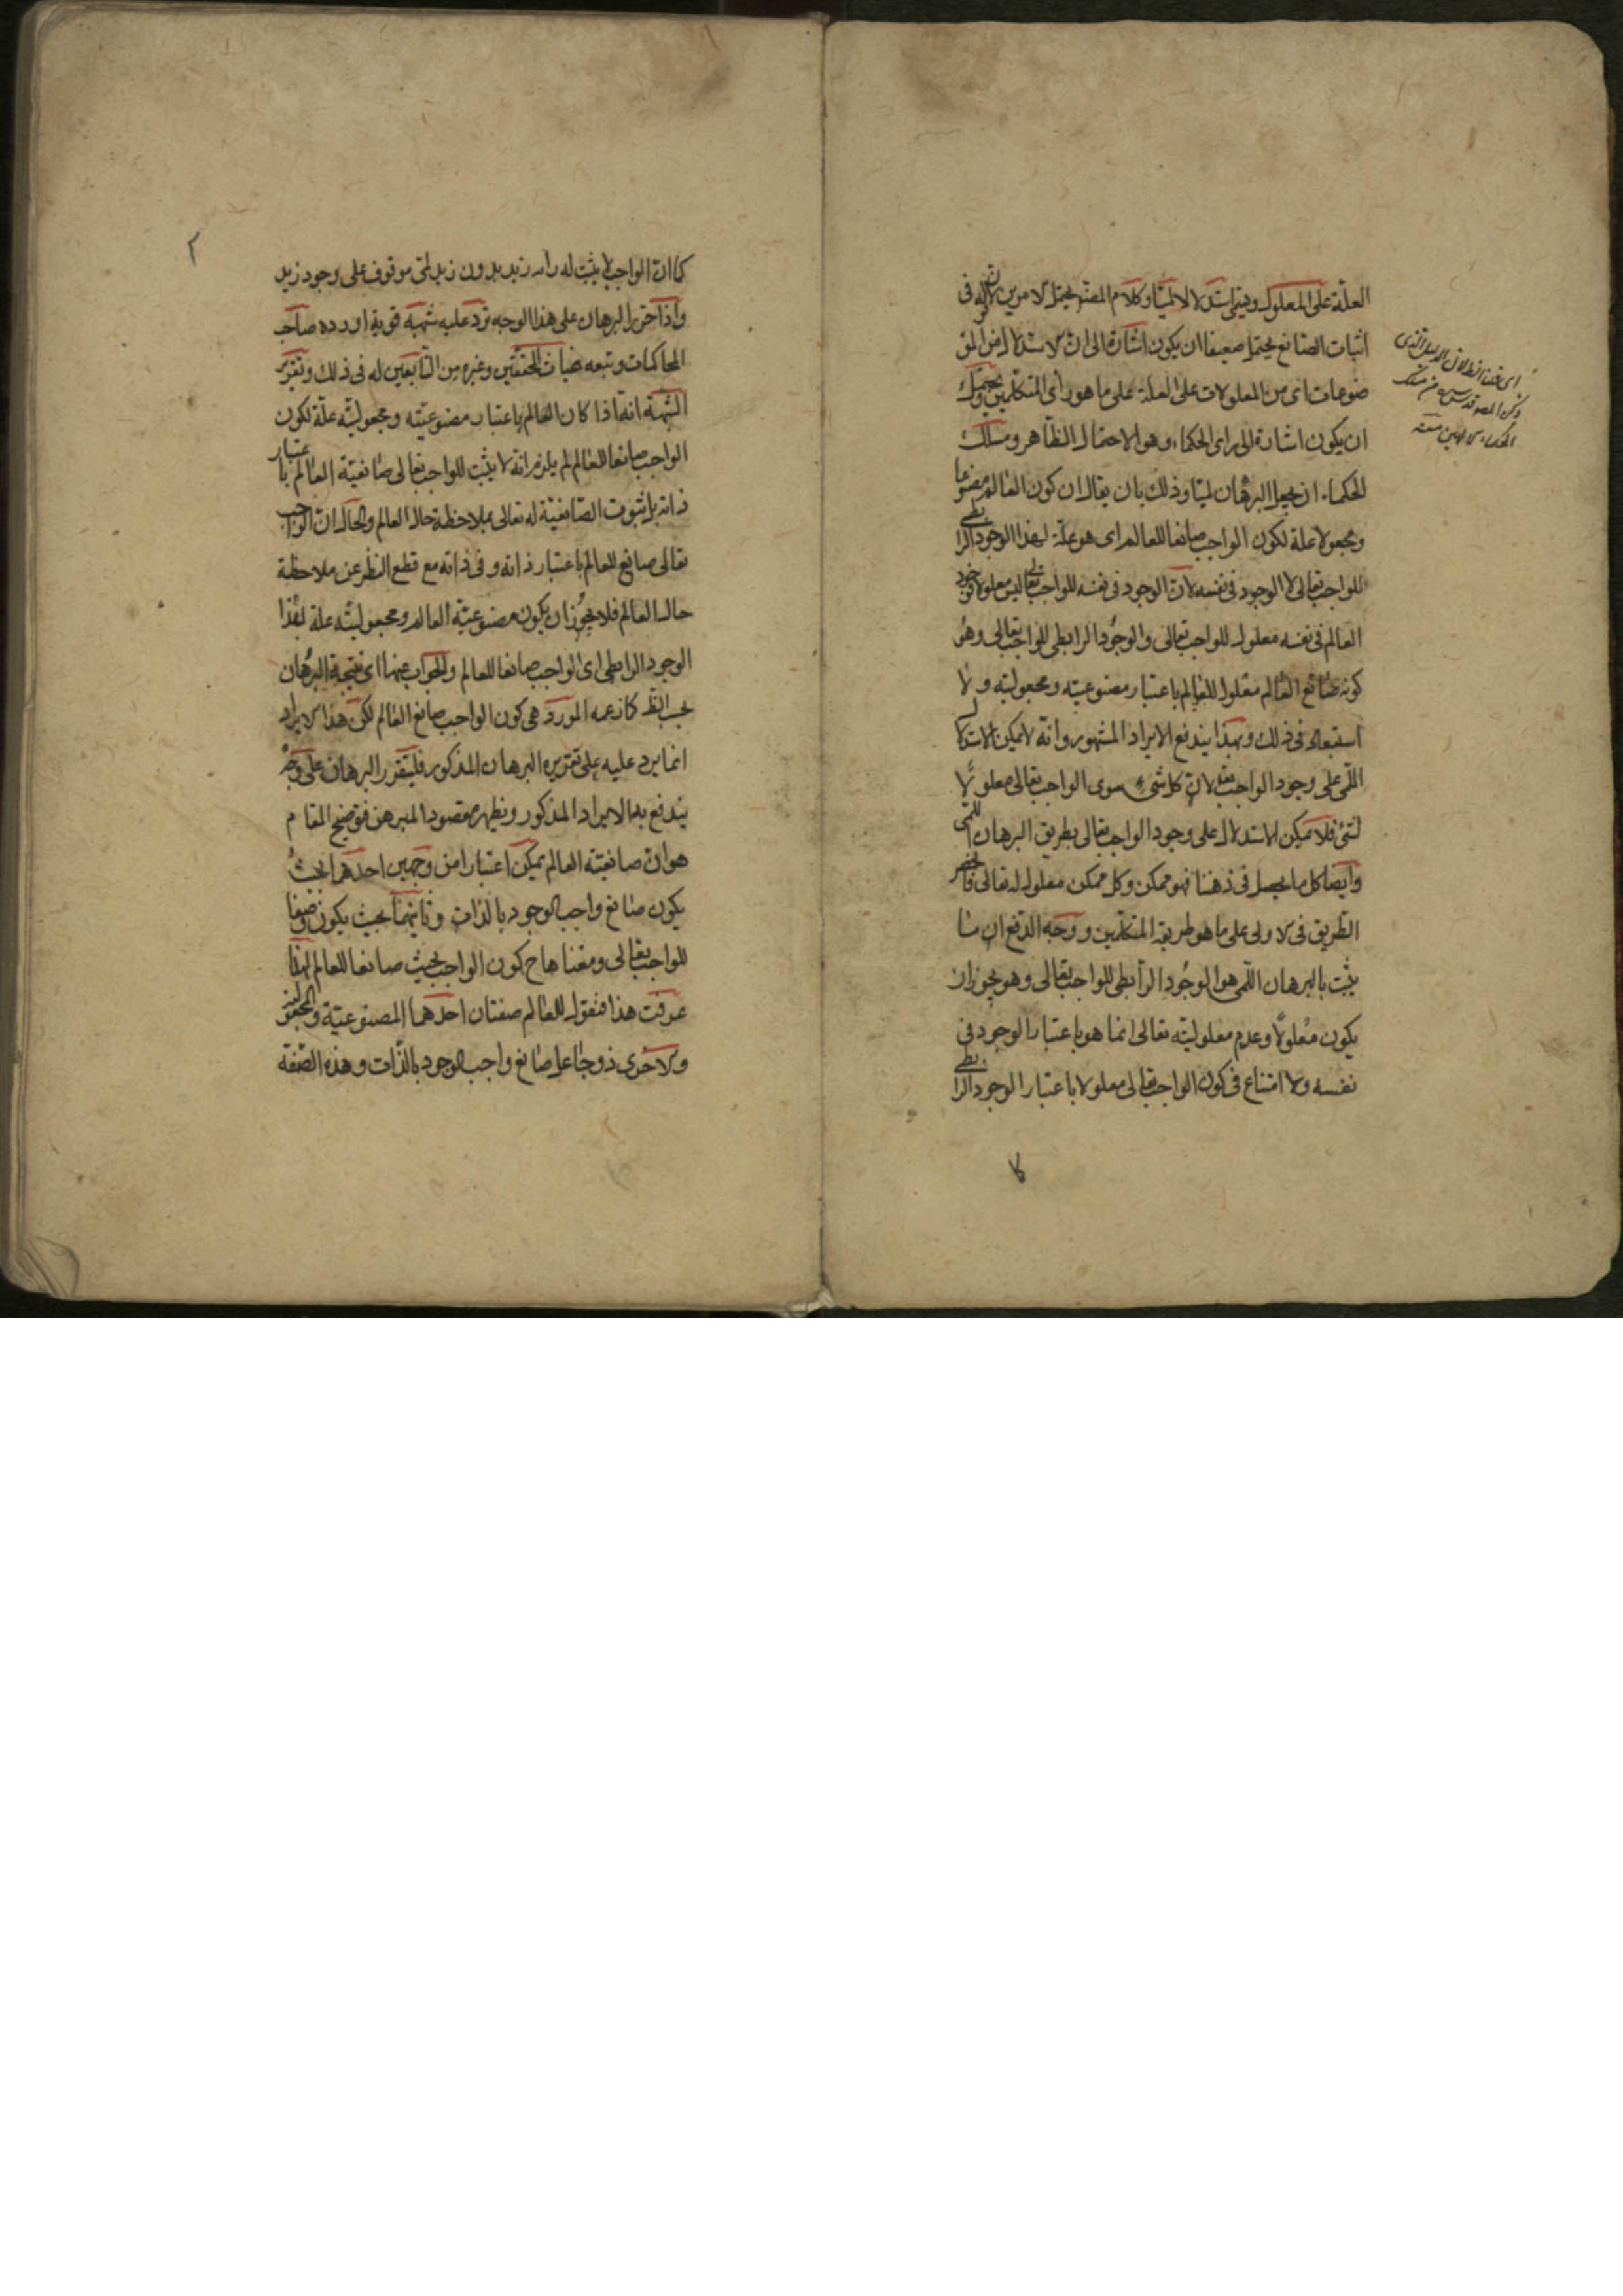 العلّة على المعلول ويسمى استدلالا لميّا وكلام المصنف يحتمل الامرين لان قوله فى
اثبات الصانع يحتمل ضعيفا ان يكون اشارة الى ان الاستدلال من المص
ضوعات اى من المعلولات على العلة على ما هو رأى المتكلمين ويحتمل
ان يكون اشارة الى راى الحكماء وهو الاحتمال الظاهر ومسلك
الحكماء ان يجعل البرهان لميّا وذلك بان يقال ان كون العالم مصنوعا
ومجعولا علة لكون الواجب صانعا للعالم اى هو علة لهذا الوجود الرا بطى
للواجب تعالى لا الوجود فى نفسه لان الوجود فى نفسه للواجب تعالى ليس معلولا فوجود
العالم فى نفسه معلول للواجب تعالى والوجود الرابطى للواجب تعالى وهو
كونه صانع العالم معلول للعالم باعتبار مصنوعيته ومجعوليته ولا
استبعاد فى ذلك وبهذا يندفع الايراد المشهور وانه لا يمكن الاستدلا ل
اللمّى على وجود الواجب لان كل شىء سوى الواجب تعالى معلولا
لشئ فلا يمكن الاستدلال على وجود الواجب تعالى بطريق البرهان اللمّى
وايضا كل ما يحصل فى ذهننا فهو ممكن وكل ممكن معلول له تعالى فانحصر
الطريق فى الاولى على ما هو طريقة المتكلمين ووجه الدفع ان ما
يثبت بالبرهان اللّمى هو الوجود الرابطى للواجب تعالى وهو يجوز ان
يكون معلولا وعدم معلوليته تعالى انما هو باعتبار الوجود فى
نفسه ولا امتناع فى كون الواجب تعالى معلولا باعتبار الوجود الرا بطى
كما ان الواجب لا يثبت له رب زيد بدون زيد حتى موقوف على وجود زيد
واذا حرّر البرهان على هذا الوجه ترد عليه شبهة قوية اورده صاحب
المحاكمات وتبعه غياث المحققين وغيره من التابعين له فى ذلك وتقرير
الشبهة انه اذا كان العالم باعتبار مصنوعيته ومجعوليته علّة لكون
الواجب صانعا للعالم لم يلزم انه لا يثبت للواجب تعالى صانعيّة العالم با عتبار
ذاته بل ثبوت الصانعيّة له تعالى بملاحظة حال العالم والحال ان الواجب
تعالى صانع للعالم باعتبار ذاته وفى ذاته مع قطع النظر عن ملاحظة
حال العالم فلا يجوز ان يكون مصنوعيّة العالم ومجعوليته علة لهذا
الوجود الرابطى اى الواجب صانعا للعالم والجواب عنها اى نتيجة البرهان
بحسب الظ كما زعمه المورد هى كون الواجب صانع العالم لكن هذا الايراد
انما يرد عليه على تقريره البرهان المذكور فليتقرر البرهان على وجه
يندفع به الايراد المذكور ويظهر مقصود المبرهن فتوضيح المقام
هو ان صانعيّة العالم يمكن اعتبارا من وجهين احدهما بحيث
يكون صانع واجب الوجود بالذات وثانيهما بحيث يكون وصفا
للواجب تعالى ومعناها ح كون الواجب بحيث صانعا للعالم اذا
عرفت هذا فنقول للعالم صفتان احدهما المصنوعيّة والمجعولية
والاخرى ذو جاعل صانع واجب الوجود بالذات وهذه الصّفة